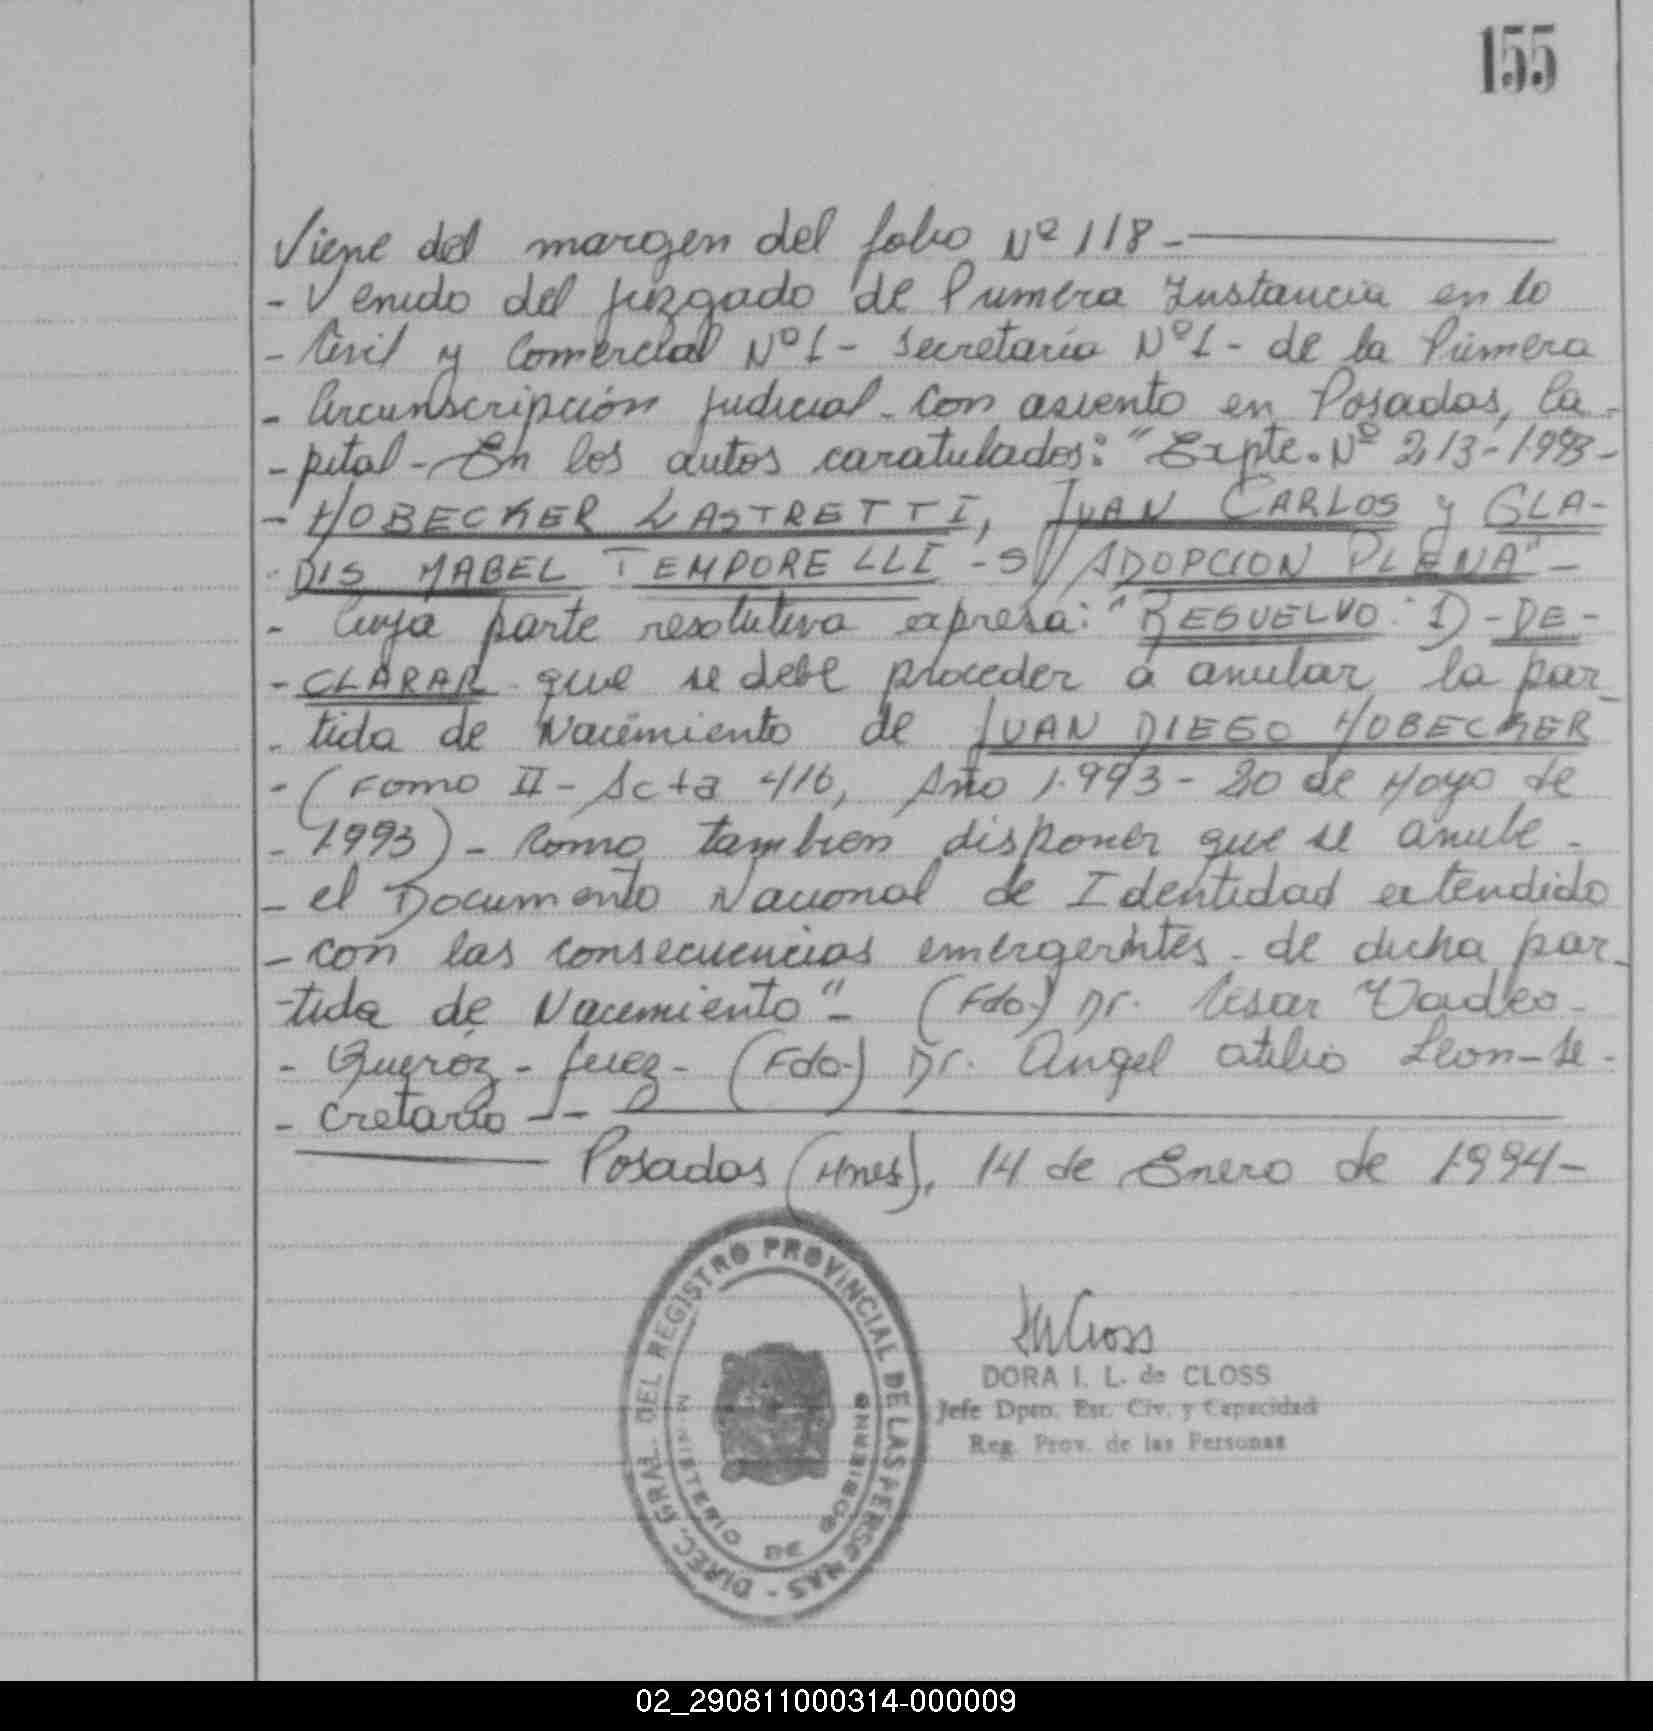 155
Viene del margen del folio Nº 118-
- Venido del Juzgado de Primera Instancia en lo
- Civil y Comercial Nº 1 - Secretaría Nº 1 - de la Primera
- Circunscripción Judicial - Con asiento en Posadas, Ca-
- pital - En los autos caratulados: "Expte. Nº 213-1993-
- HOBECKER LASTRETTI, JUAN CARLOS y GLA-
DIS MABEL TEMPORELLI - S/ADOPCION PLENA" -
- Cuya parte resolutiva expresa: "RESUELVO: 1) - DE-
- CLARAR que se debe proceder a anular la par-
- tida de Nacimiento de JUAN DIEGO HOBECKER
- (Tomo II - Acta 416, Año 1.993 - 20 de Mayo de
- 1993) - Como tambien disponer que se anule -
- el Documento Nacional de Identidad extendido
- con las consecuencias emergentes - de dicha par-
- tida de Nacimiento" - (Fdo.) Dr. Cesar
- Queróz - Juez - (Fdo.) Dr. Angel Atilio Leon - Se-
- cretario - -
Posadas (Mnes), 14 de Enero de 1994-
DIREC. GRAL. DEL REGISTRO PROVINCIAL DE LAS PERSONAS -
MINISTERIO DE GOBIERNO
DORA I. L. de CLOSS
Jefe Dpto. Est. Civ. y Capacidad
Reg. Prov. de las Personas
02_290811000314-000009